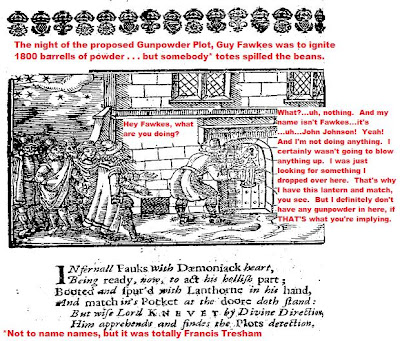 The night of the proposed Gunpowder Plot, Guy Fawkes was to ignite
1800 barrells of powder . . . but somebody* totes spilled the beans.
Hey Fawkes, what
are you doing?
What?...uh, nothing. And my
name isn't Fawkes...it's
...uh...John Johnson! Yeah!
And I'm not doing anything. I
certainly wasn't going to blow
anything up. I was just
looking for something I
dropped over here. That's why
I have this lantern and match,
you see. But I definitely don't
have any gunpowder in here, if
THAT'S what you're implying.
INfernall Fauks with Dæmoniack heart,
Being ready, now, to act his hellish part;
Booted and spur'd with Lanthorne in his hand,
And match in's Pocket at the doore doth stand:
But wise Lord KNEVET by Divine Direction,
Him apprehends and findes the Plots detection,
*Not to name names, but it was totally Francis Tresham